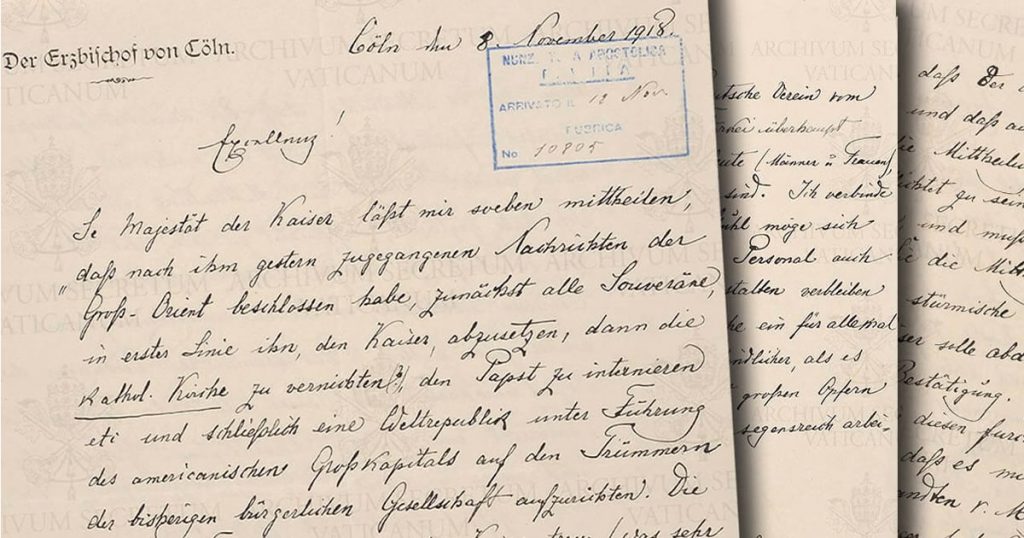 Der Erzbischof von Cöln.
Cöln den 8. November 1918.
NUNZ. APOSTOLICA
ARRIVATO IL 12 Nov.
RUBRICA
No 10805
Excellenz!
Se Majestät der Kaiser läßt mir soeben mittheilen,
"daß nach ihm gestern zugegangenen Nachrichten der
Groß-Orient beschlossen habe, zunächst alle Souveräne,
in erster Linie ihn, den Kaiser, abzusetzen, dann die
Kathol. Kirche zu vernichten(?), den Papst zu internieren
etc und schließlich eine Weltrepublik unter Führung
des americanischen Großkapitals auf den Trümmern
der bisherigen bürgerlichen Gesellschaft aufzurichten. Die
(was sehr
utsche Verein vom
überhaupt
(Männer u Frauen)
sind. Ich verbinde
möge sich
Personal auch
stalten verbleiben
ein für allemal
ndlicher, als es
großen Opfern
segensreich arbei-
daß der
und daß
Mittheilu
zu sein
und
die Mitt
stürmische
solle abd
Bestätigung.
diesen furc
daß es
ndten v.
ARCHIVUM SECRETUM
VATICANUM